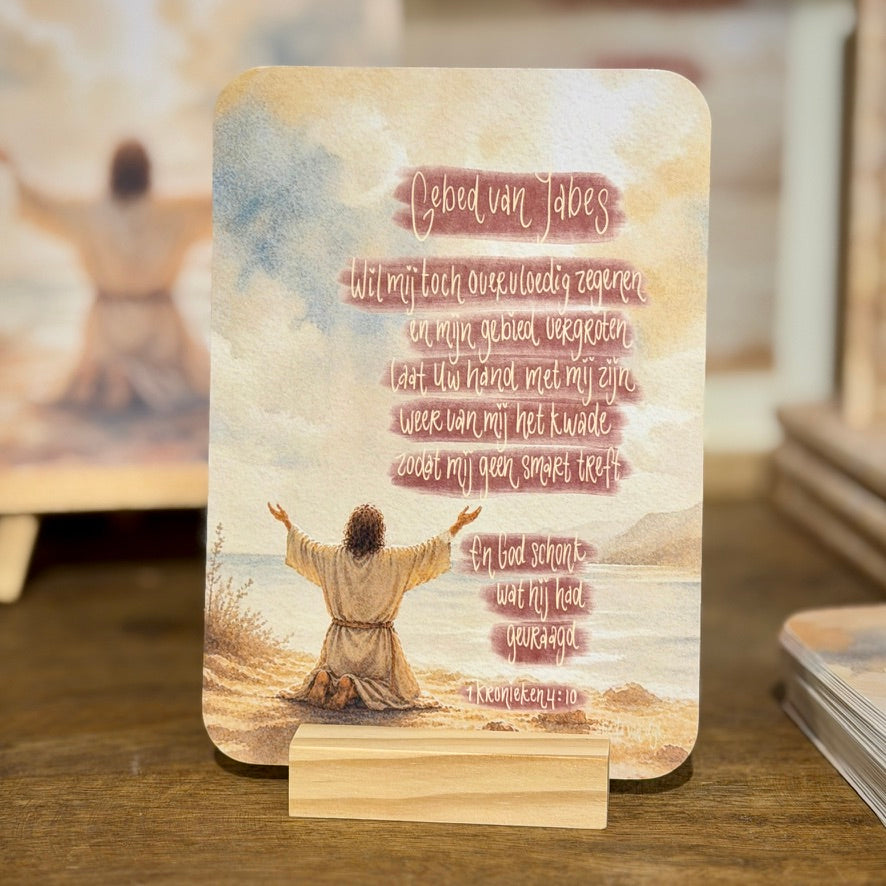 Gebed van Jabes
Wil mij toch overvloedig zegenen
en mijn gebied vergroten
laat Uw hand met mij zijn
weer van mij het kwade
zodat mij geen smart treft
En God schonk
wat hij had
gevraagd
1 Kronieken 4:10